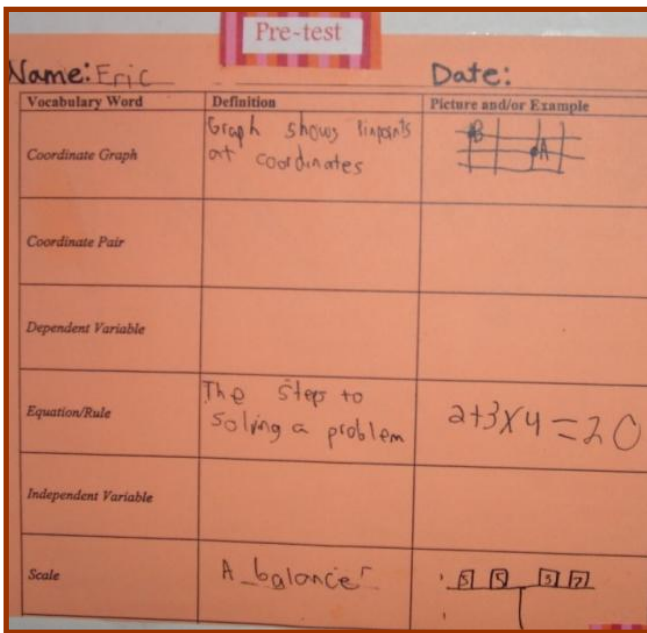 Pre-test
Name: Eric
Date:
Vocabulary Word Definition Picture and/or Example
Coordinate Graph
Graph shows Pinpoints
at coordinates
B
A
Coordinate Pair
Dependent Variable
Equation/Rule
The steps to
solving a problem
2+3x4=20
Independent Variable
Scale
A balancer
5 5 3 7